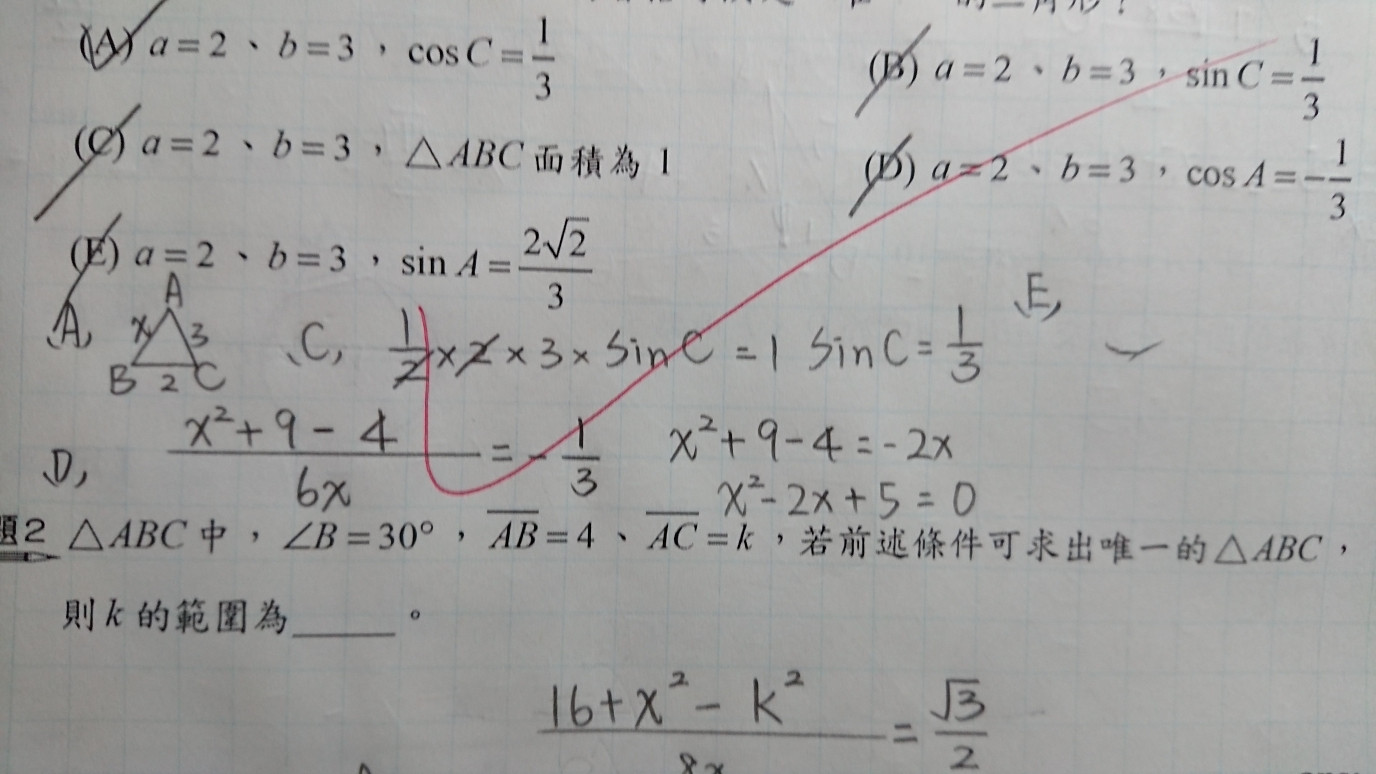 的三角形？
(A) a=2、b=3，cos C=1/3
(B) a=2、b=3，sin C=1/3
(C) a=2、b=3，△ABC面積為1
(D) a=2、b=3，cos A=-1/3
(E) a=2、b=3，sin A=2√2/3
A, A x 3 B 2 C
C, 1/2×2×3×sinC=1 sinC=1/3
E,
D, (x²+9-4)/6x=-1/3 x²+9-4=-2x
x²-2x+5=0
題2 △ABC中，∠B=30°，AB=4、AC=k，若前述條件可求出唯一的△ABC，
則k的範圍為_____。
(16+x²-k²)/8x=√3/2